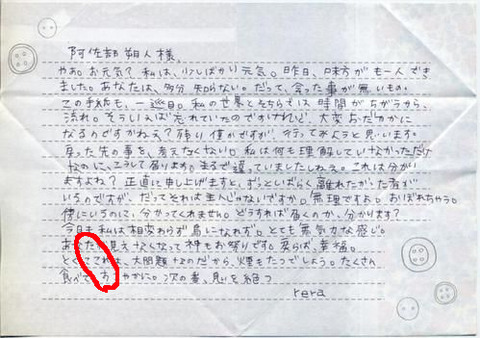 阿佐部朔人様、
やあ。お元気？私は、少しばかり元気。昨日、味方が一人でき
ました。あなたは、多分知らない。だって、会った事が無いもの。
この手紙も、一巡目。私の世界とそちらでは時間がちがうから、
流れ。そういえば忘れていたのですけれど、大変
なるのですかねえ？残り僅かですが、行ってみようと思います。
先の事を、考えたくない。私は何も理解していなかっただけ
なのに、こうして居ります。まるで違っていましたしねえ。これは分かり
ますよね？正直に申し上げますと、ずっとしばらく離れた
いるのですが、だってそれは主人じゃないですか。無理ですね。おぼれちゃう。
傍にいるのに、分かってくれません。どうすれば届くのか、分かります？
今日も私は相変わらず鳥になれず。とても無気力な感じ。
見えなくなって神もお祭りです。幸福。
大問題なのだから、煙もたつでしょう。たくさん
食べて。次の春、息を絶つ
rera